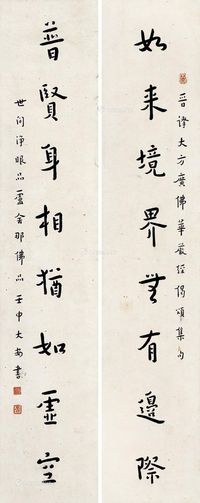 如来境界無有邊際
晉譯大方廣佛華嚴經偈頌集句
普賢身相猶如虛空
世間淨眼品盧舍那佛品 壬申大安書